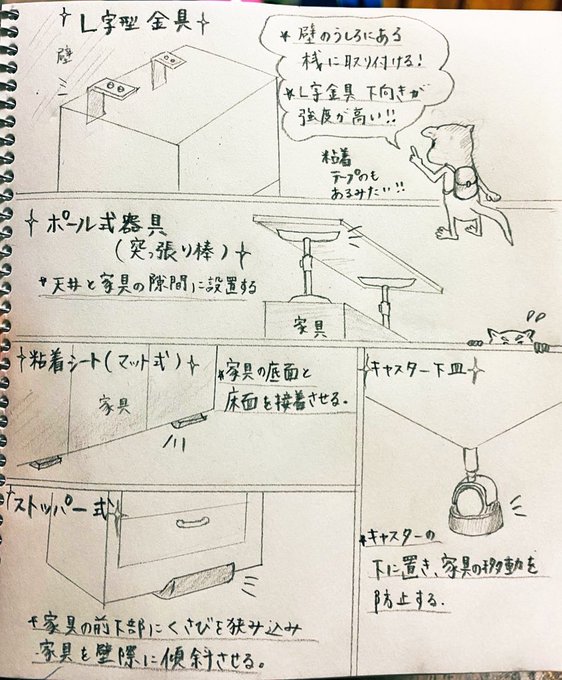 L字型 金具
壁
* 壁のうしろにある
桟に取り付ける!
*L字金具 下向きが
強度が高い!!
粘着
テープのも
あるみたい!!
ポール式器具
(突っ張り棒)
* 天井と家具の隙間に設置する
家具
粘着シート(マット式)
家具
*家具の底面と
床面を接着させる.
キャスター下皿
*キャスターの
下に置き、家具の移動を
防止する.
ストッパー式
*家具の前下部にくさびを狭み込み
家具を壁際に傾斜させる。